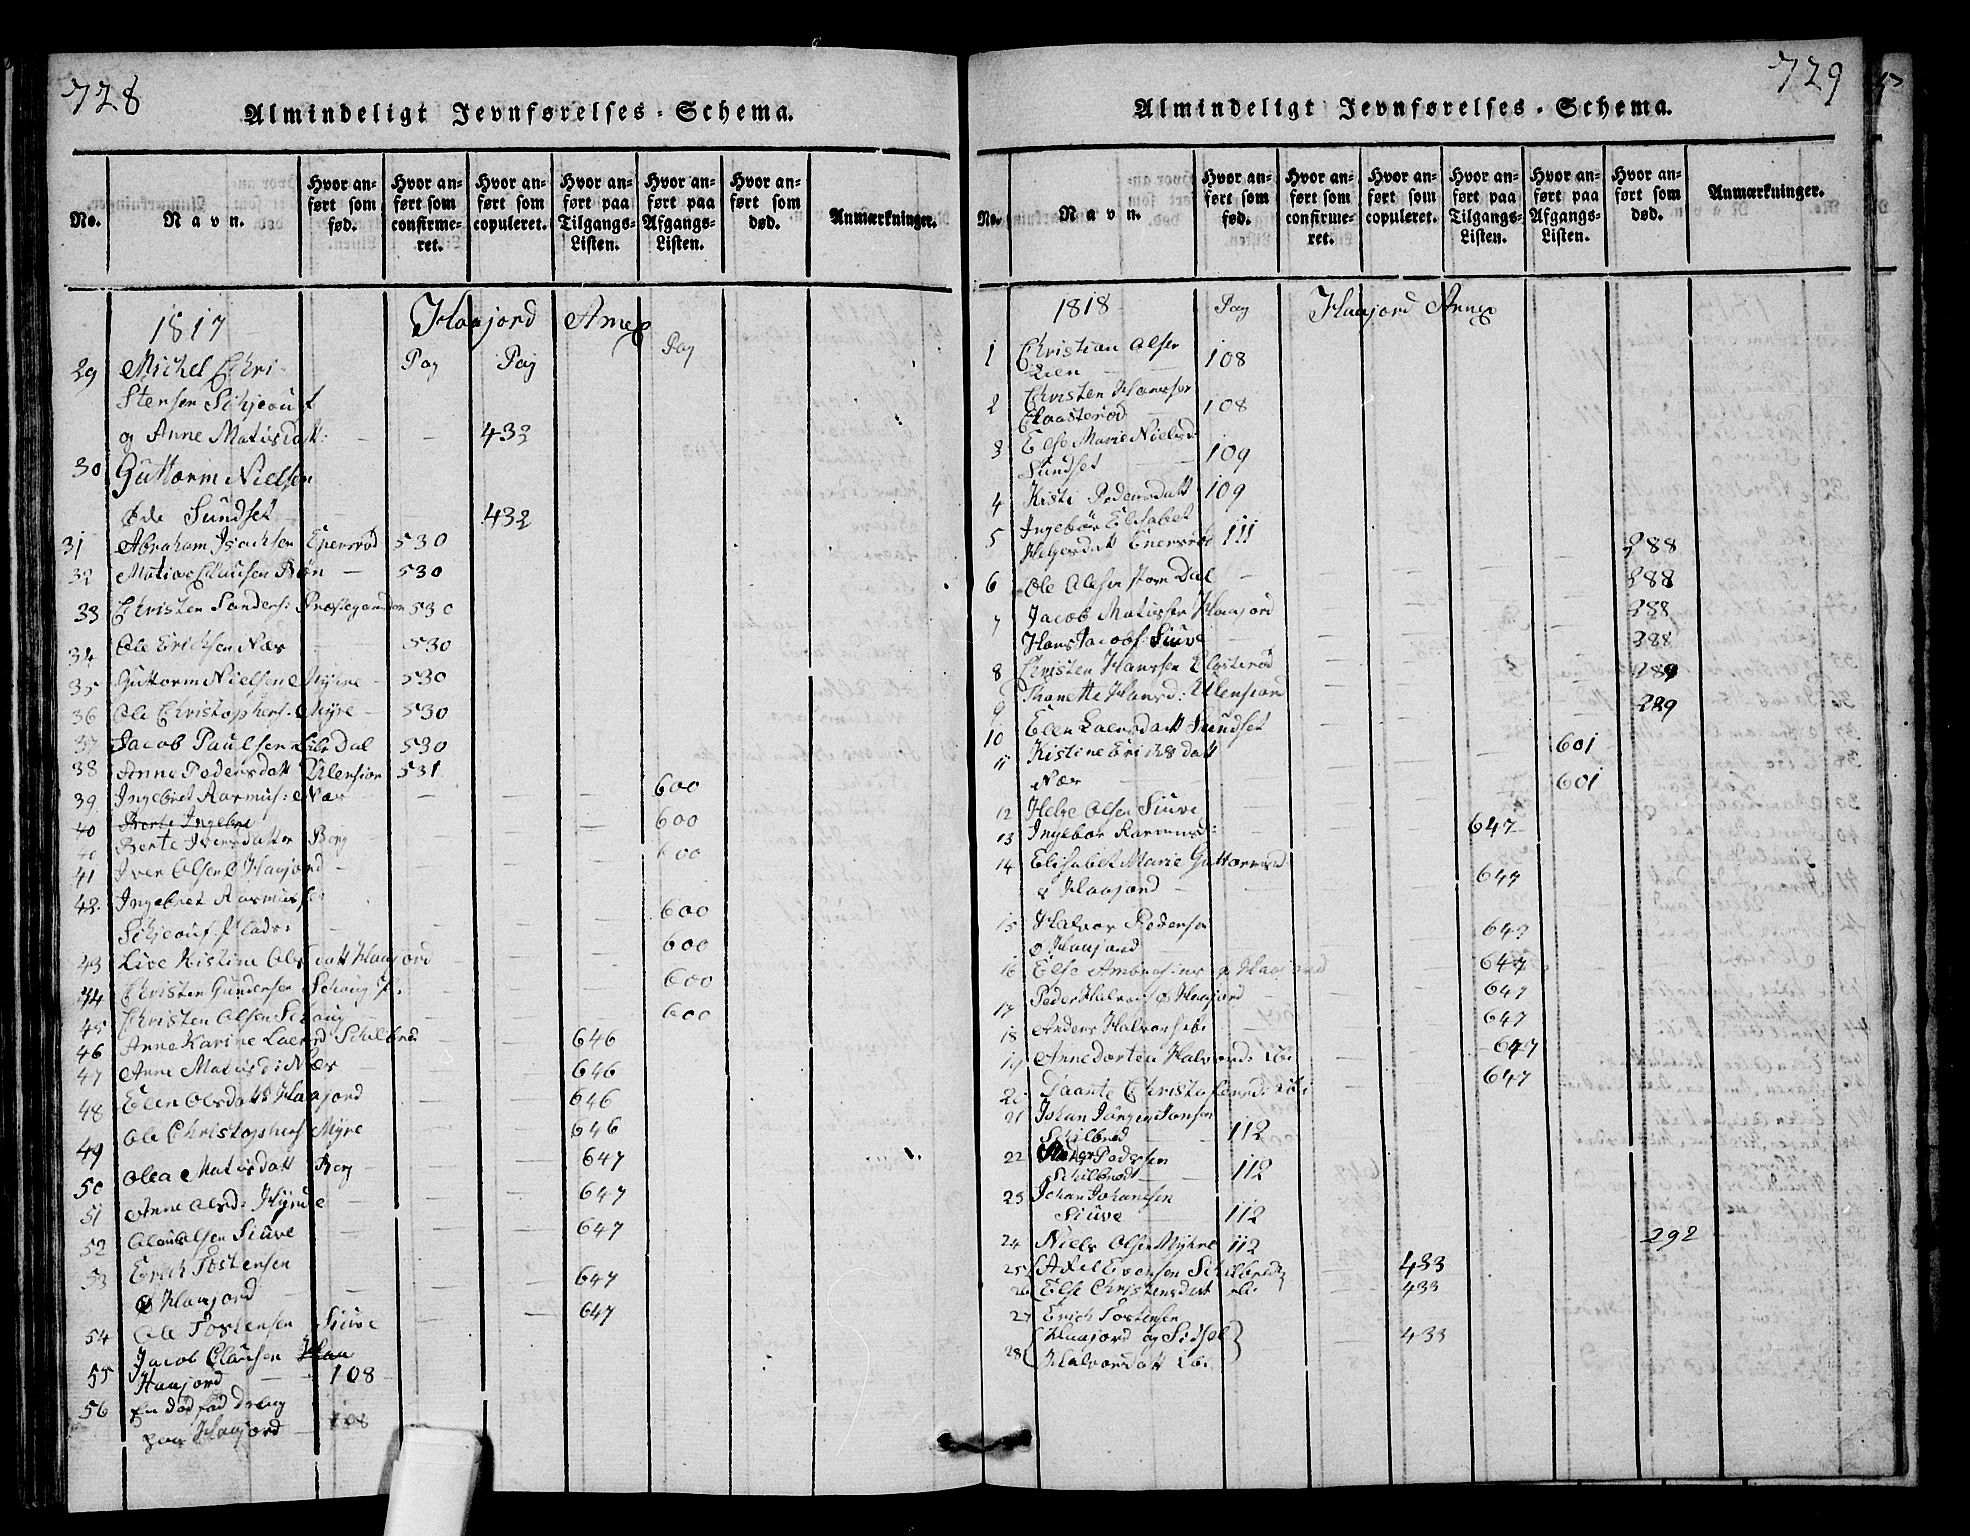 728
Almindeligt Jevnførelses-Schema.
No.
Navn.
Hvor anført som fød.
Hvor anført som confirmeret.
Hvor anført som copuleret.
Hvor anført paa Tilgangs-Listen.
Hvor anført paa Afgangs-Listen.
Hvor anført som død.
Anmærkninger.
1817 Haajord Annex
Pag Pag Pag
29 Michel Chri-
stensen
og Anne Matisdatt: 432
30 Guttorm Nielsen
Sundset 432
31 Abraham Isachsen Enersrød 530
32 Clausen Bøn 530
33 Christen Sanders: 530
34 Ole Erichsen Næs 530
35 Guttorm Nielsen Myhre 530
36 Ole Christophers: Myre 530
37 Jacob Paulsen Dal 530
38 Anne Pedersdatt Ulensior 531
39 Ingebret Aasmus: Næs 600
40 Berte Ingebre
40 Berte Iversdatter Berg 600
41 Iver Olsen Haajord 600
42 Ingebret Aasmusse:
Plads: 600
43 Live Kistine Olsdatt Haajord 600
44 Christen Gundersen 600
45 Christen Olsen 600
46 Anne Karine Laersd Schilbred 646
47 Anne Matisd: Næs 646
48 Elen Olsdatt Haajord 646
49 Ole Christophers Myre 646
50 Olea Matisdatt Berg 647
51 Anne Olsd: 647
52 Olsen Siuve 647
53 Erich Tostensen
Haajord 647
54 Ole Tostensen Siuve 647
55 Jacob Clausen Haa
Haajord 108
56 En død fød Dreng
Haajord 108
729
Almindeligt Jevnførelses-Schema.
No.
Navn.
Hvor anført som fød.
Hvor anført som confirmeret.
Hvor anført som copuleret.
Hvor anført paa Tilgangs-Listen.
Hvor anført paa Afgangs-Listen.
Hvor anført som død.
Anmærkninger.
1818 Pag Haajord Annex
1 Christian Olsen
Lien 108
2 Christen Hanssen
Claasterød 108
3 Else Marie Nielsd:
Sundset 109
4 Kisti Pedersdatt 109
5 Ingebør Elisabet
Helgesdatt Enersrød 111
6 Ole Olsen Dal 288
7 Jacob Matissen Haajord 288
Hans Jacobs: Siuve 288
8 Christen Hanssen Closterød 288
9 Thonette Hansd: Ulensiord 289
10 Elen Laersdatt Sundset 289
11 Kistine Erichsdatt
Næs 601
12 Helve Olsen Siuve 601
13 Ingebor Rasmusd:
14 Elisabet Marie Guttormsd 647
Haajord 647
15 Halvor Pedersen
Haajord 647
16 Else Haajord 647
17 Peder Halvors Haajord 647
18 Anders Halvors ibi 647
19 Anne Dorten Halvord: ibi 647
20 Daante Christophersd: ibi 647
21 Johan Jørgen Hansen
Schilbred 112
22 Pedersen
Schilbredt 112
23 Johan Johansen
Siuve 112
24 Niels Olsen Myhre 112 292
25 Axel Evensen Schilbred 433
26 Else Christensdat ibi: 433
27 Erich Tostensen
Haajord og Sidsel 433
28 Halvorsdatt ibi